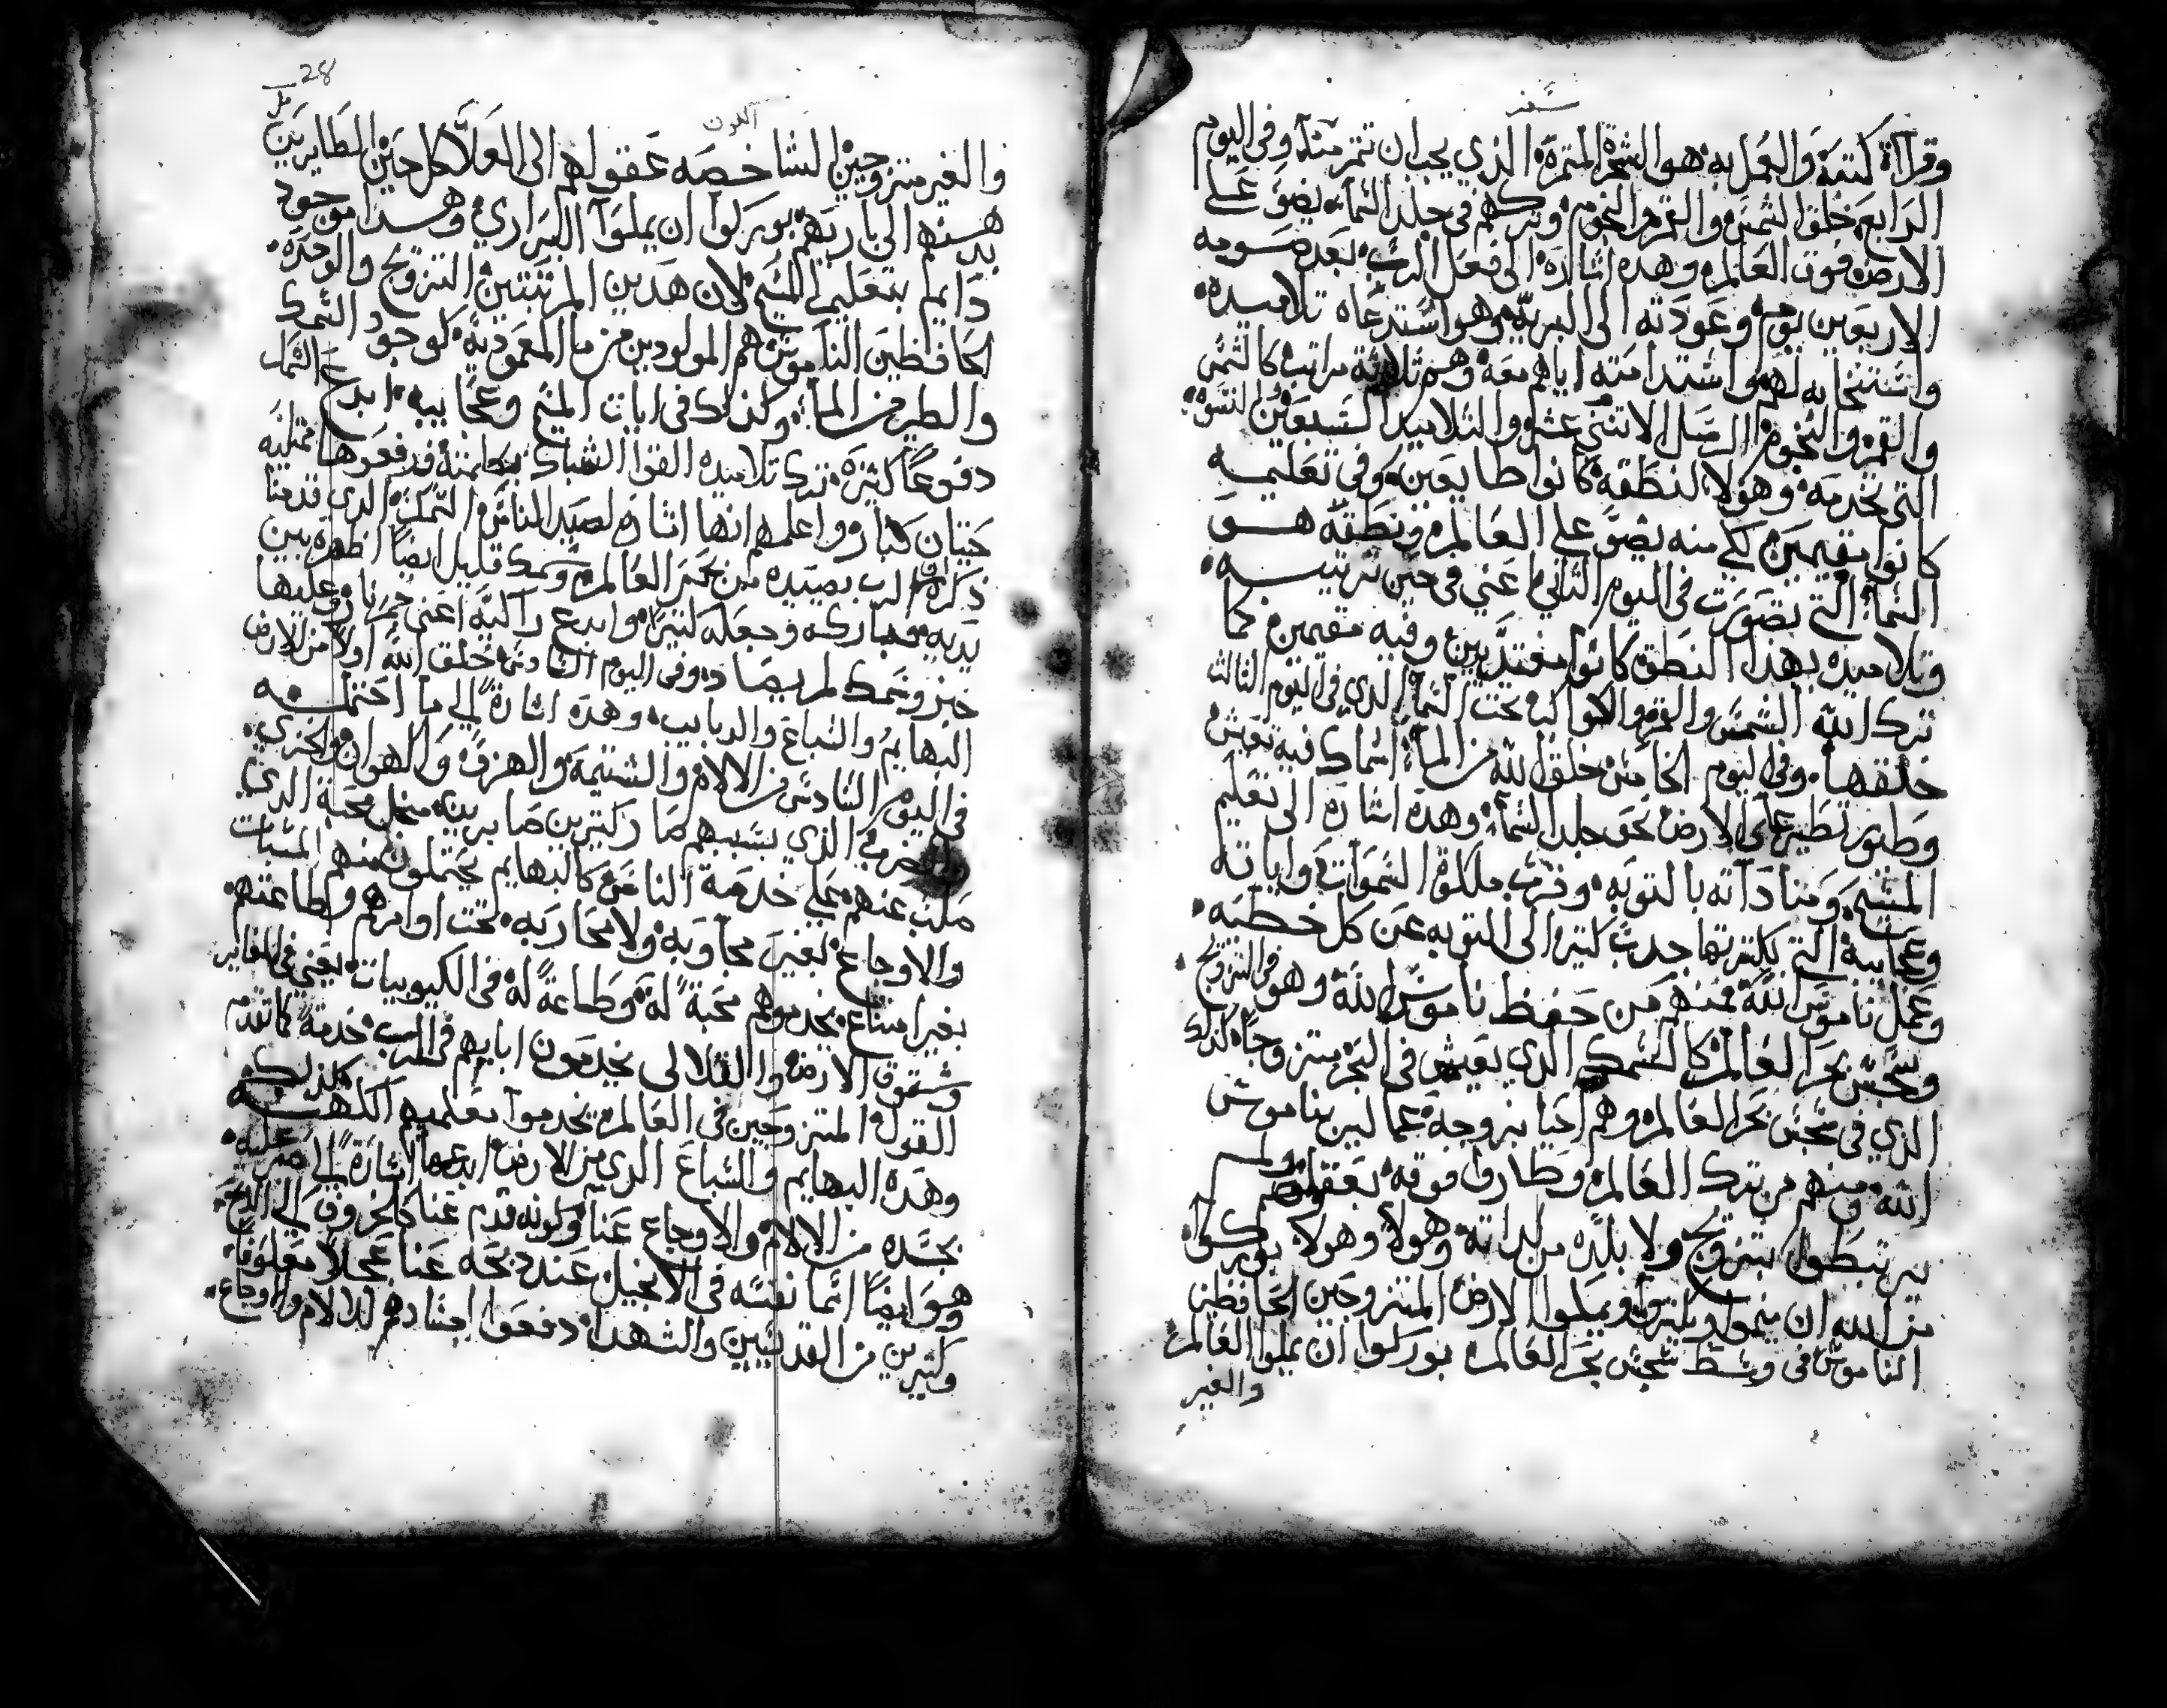 سفر
وقرأة كتبة والعمل به هو الشجرة المثمرة الذي يجب ان تثمر منذا وفى اليوم
الرابع خلق الشمس والقمر والنجوم وتركهم فى جلد السماء يضوء على
الارض فوق العالم وهذه اشاره الى فعل الرب بعد صومه
الاربعين يوم وعودته الى البريه وهو استدعاه تلاميذه
وانتخابه لهم واستدامته اياهم معه وهم ثلاثة مراتب كالشمس
والقمر والنجوم الرسل الاثنى عشر والتلاميذ السبعين النسوه
التى تخدمه وهولا لنطقه كانوا طايعين وفى تعليمه
كانوا مقيمين لكي منه يضو على العالم ونطقه هو
السما التي تصورت فى اليوم الثاني اعني فى حين ترتيبه
وتلاميذه بهذا النطق كانوا مغتديين وفيه مقيمين كما
ترك الله الشمس والقمر والكواكب تحت السما الذي فى اليوم الثالث
خلقها وفى اليوم الخامس خلق الله من الما اسماك فيه تعيش
وطيور تطير على الارض نحو جلد السما وهذه اشارة الى تعليم
المسيح ومناداته بالتوبه وقرب ملكوة السموات واياته
وعجايبه التي بكثرتها جدت كثير الى التوبه عن كل خطيه
وعمل ناموس الله فمنهم من حفظ ناموس الله وهو فى التزويج
وسجس بحر العالم كالسمك الذي يعيش فى البحر متزوجاه لذلك
الذي فى سجس بحر العالم وهم احيا بزوجة عمالين بناموس
الله ومنهم من ترك العالم وطار فوقه بعقله ولم
يرتبطوا بتزويج ولا بلده من لداته وهولا وهولا بوركوا
من الله ان ينموا ويكثروا ويملوا الارض المتزوجين الحافظين
الناموس فى وسط سجس بحر العالم بوركوا ان يملوا العالم
والغير
28
والغير متزوجين الشاخصه عقولهم الى العلا كل حين الطايرين
بدهنهم الى باريهم بوركوا ان يملوا البراري وهذا موجود
دايما بتعليم المسيح لان هدين المرتبتين التزويج والوحده
الحافظين الناموس هم المولودين من ما المعموديه كوجود السمك
والطير من الما وكذلك فى ايات المسيح وعجايبه ابدع السمك
دفوعا كثيرة ترك تلاميذه القوا الشباك بكلمته فرفعوها ممتليه
حيتان كبار واعلمهم انها اشاره لصيد الناس السمك الذي قدمنا
ذكره ان الرب بصيده من بحر العالم وسمك قليل ايضا اظهره بين
يديه فباركه وجعله كثيرا وابدع رآليه اعنى جمر نار وعليها
خبز وسمك لم يصاد وفى اليوم السادس خلق الله اولا من الارض
البهايم والسباع والدبابيب وهذه اشارة الى ما احتمله
فى اليوم السادس من الالام والشتيمة والهزو والهوان والخزي
الذي بسببهم صار كثيرين صابرين من اجل محبة الذي
صلب عنهم على خدمة الناس كالبهايم يحتملون منهم السبات
والاوجاع بغير مجاوبه ولا محاربه تحت اوامرهم وطاعتهم
بغير امتناع يخدموهم محبة له وطاعة له فى الكيوبيات يعني فى المغاير
وشقوق الارض والقلالى يخدمون ابايهم فى الرب خدمة كما تقدم
القول المتزوجين فى العالم يخدموا معلميهم الكهنه كذلك
وهذه البهايم والسباع الذي من الارض ابدعها اشارة الى صبر عليه
بجسده من الالام والاوجاع عنا وكونه قدم عنا كالخروف الى الذبح
وهو ايضا انما نفسه فى الانجيل عند دبحه عنا عجلا معلوفا
وكثيرين من القديسين والشهدا دفعوا اجسادهم للالام والاوجاع